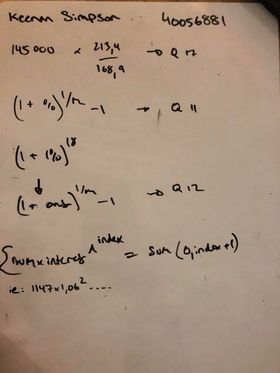 Keenan Simpson 40056881
145000 × 213,4 / 168,9 → Q 17
(1 + %)^1/12 - 1 → Q 11
(1 + 1%)^18
↓
(1 + ans)^1/12 - 1 → Q 12
{ num x interest ^ index = Sum (0, index + 1)
ie: 1147 x 1,06² .....